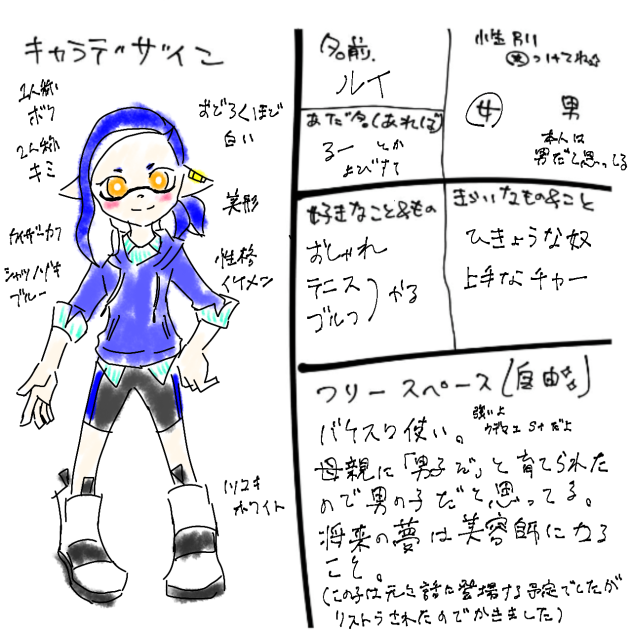 キャラデザイン
1人称
ボク
2人称
キミ
おどろくほど
白い
美形
性格
イケメン
シャツ
ブルー
ホワイト
名前.
ルイ
性別
つけてね☆
女 男
本人は
男だと思ってる
あだ名(あれば)
るー とか
よびすて
好きなこと&もの
おしゃれ
テニス
ゴルフ
やる
きらいなもの&こと
ひきょうな奴
上手なチャー
フリースペース(自由☆)
バケスロ使い。
強いよ
ウデマエ S+だよ
母親に「男子ぞ」と育てられた
ので男の子だと思ってる。
将来の夢は美容師になる
こと。
(この子は元々話に登場する予定でしたが
リストラされたのでかきました)